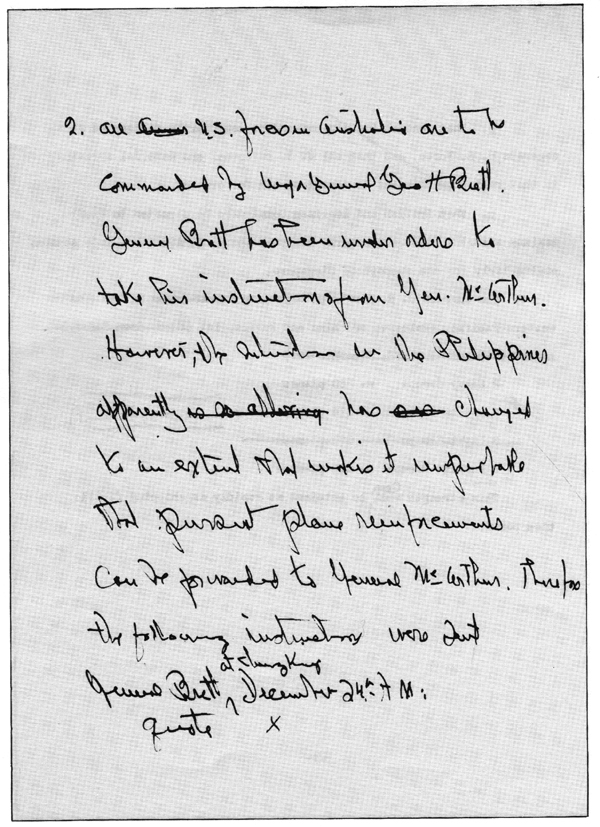 2. All U.S. forces in Australia are to be
commanded by Major General Geo H Brett.
General Brett has been under orders to
take his instructions from Gen. McArthur.
However, the situation in the Philippines
apparently is so altering has changed
to an extent that makes it improbable
that pursuit plane reinforcements
can be forwarded to General McArthur. Therefore
the following instructions were sent
at Chungking
General Brett December 24th A M:
quote X